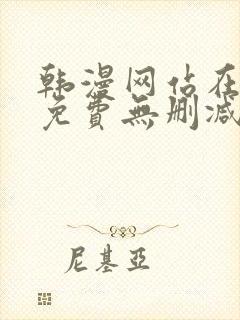 韩漫网站在
免費無删减
尼基亞